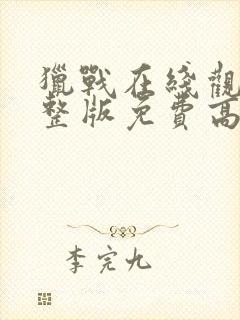 獵戰在綫觀
整版免費高
李完九